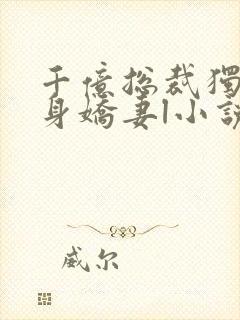 千億總裁獨
身嬌妻|小說
威尔